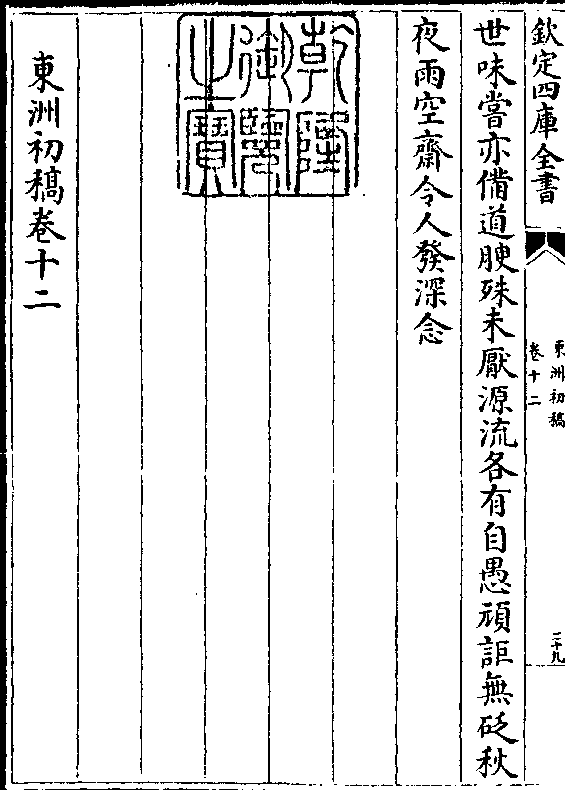 欽定四庫全書
東洲初稿
卷十二
三十九
世味嘗亦備道腴殊未厭源流各有自愚頑詎無砭秋
夜雨空齋令人發深念
乾隆
御覽
之寶
東洲初稿卷十二